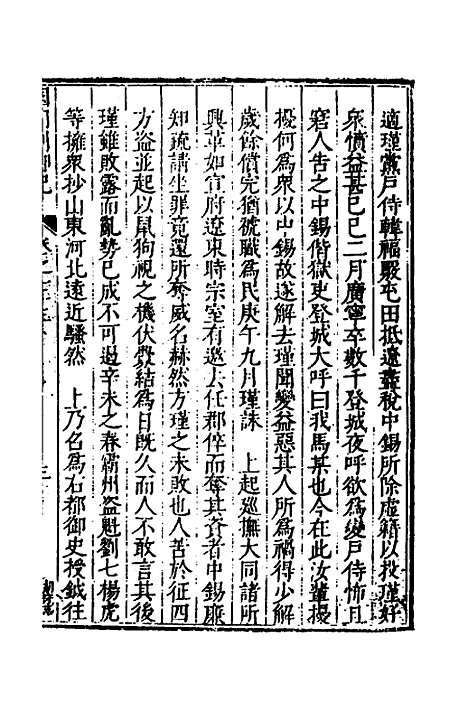 適瑾黨戶侍韓福覈屯田抵遼盡稅中錫所除虛籍以投瑾好
眾憤益甚己巳二月廣寧卒數千登城夜呼欲為變戶侍怖且
窘人告之中錫偕獄吏登城大呼曰我馬某也今在此汝輩擾
擾何為眾以中錫故遂解去瑾聞變益惡其人所為禍得少解
歲餘償完猶褫職為民庚午九月瑾誅　上起巡撫大同諸所
興革如宣府遼東時宗室有邀去任郡倅而奪其資者中錫廉
知疏請坐罪竟還所奪威名赫然方瑾之未敗也人苦於征四
方盜並起以鼠狗視之機伏釁結為日既久而人不敢言其後
瑾雖敗露而亂勢已成不可遏辛未之春霸州盜魁劉七楊虎
等擁眾抄山東河北遠近騷然　上乃召為右都御史授鉞往